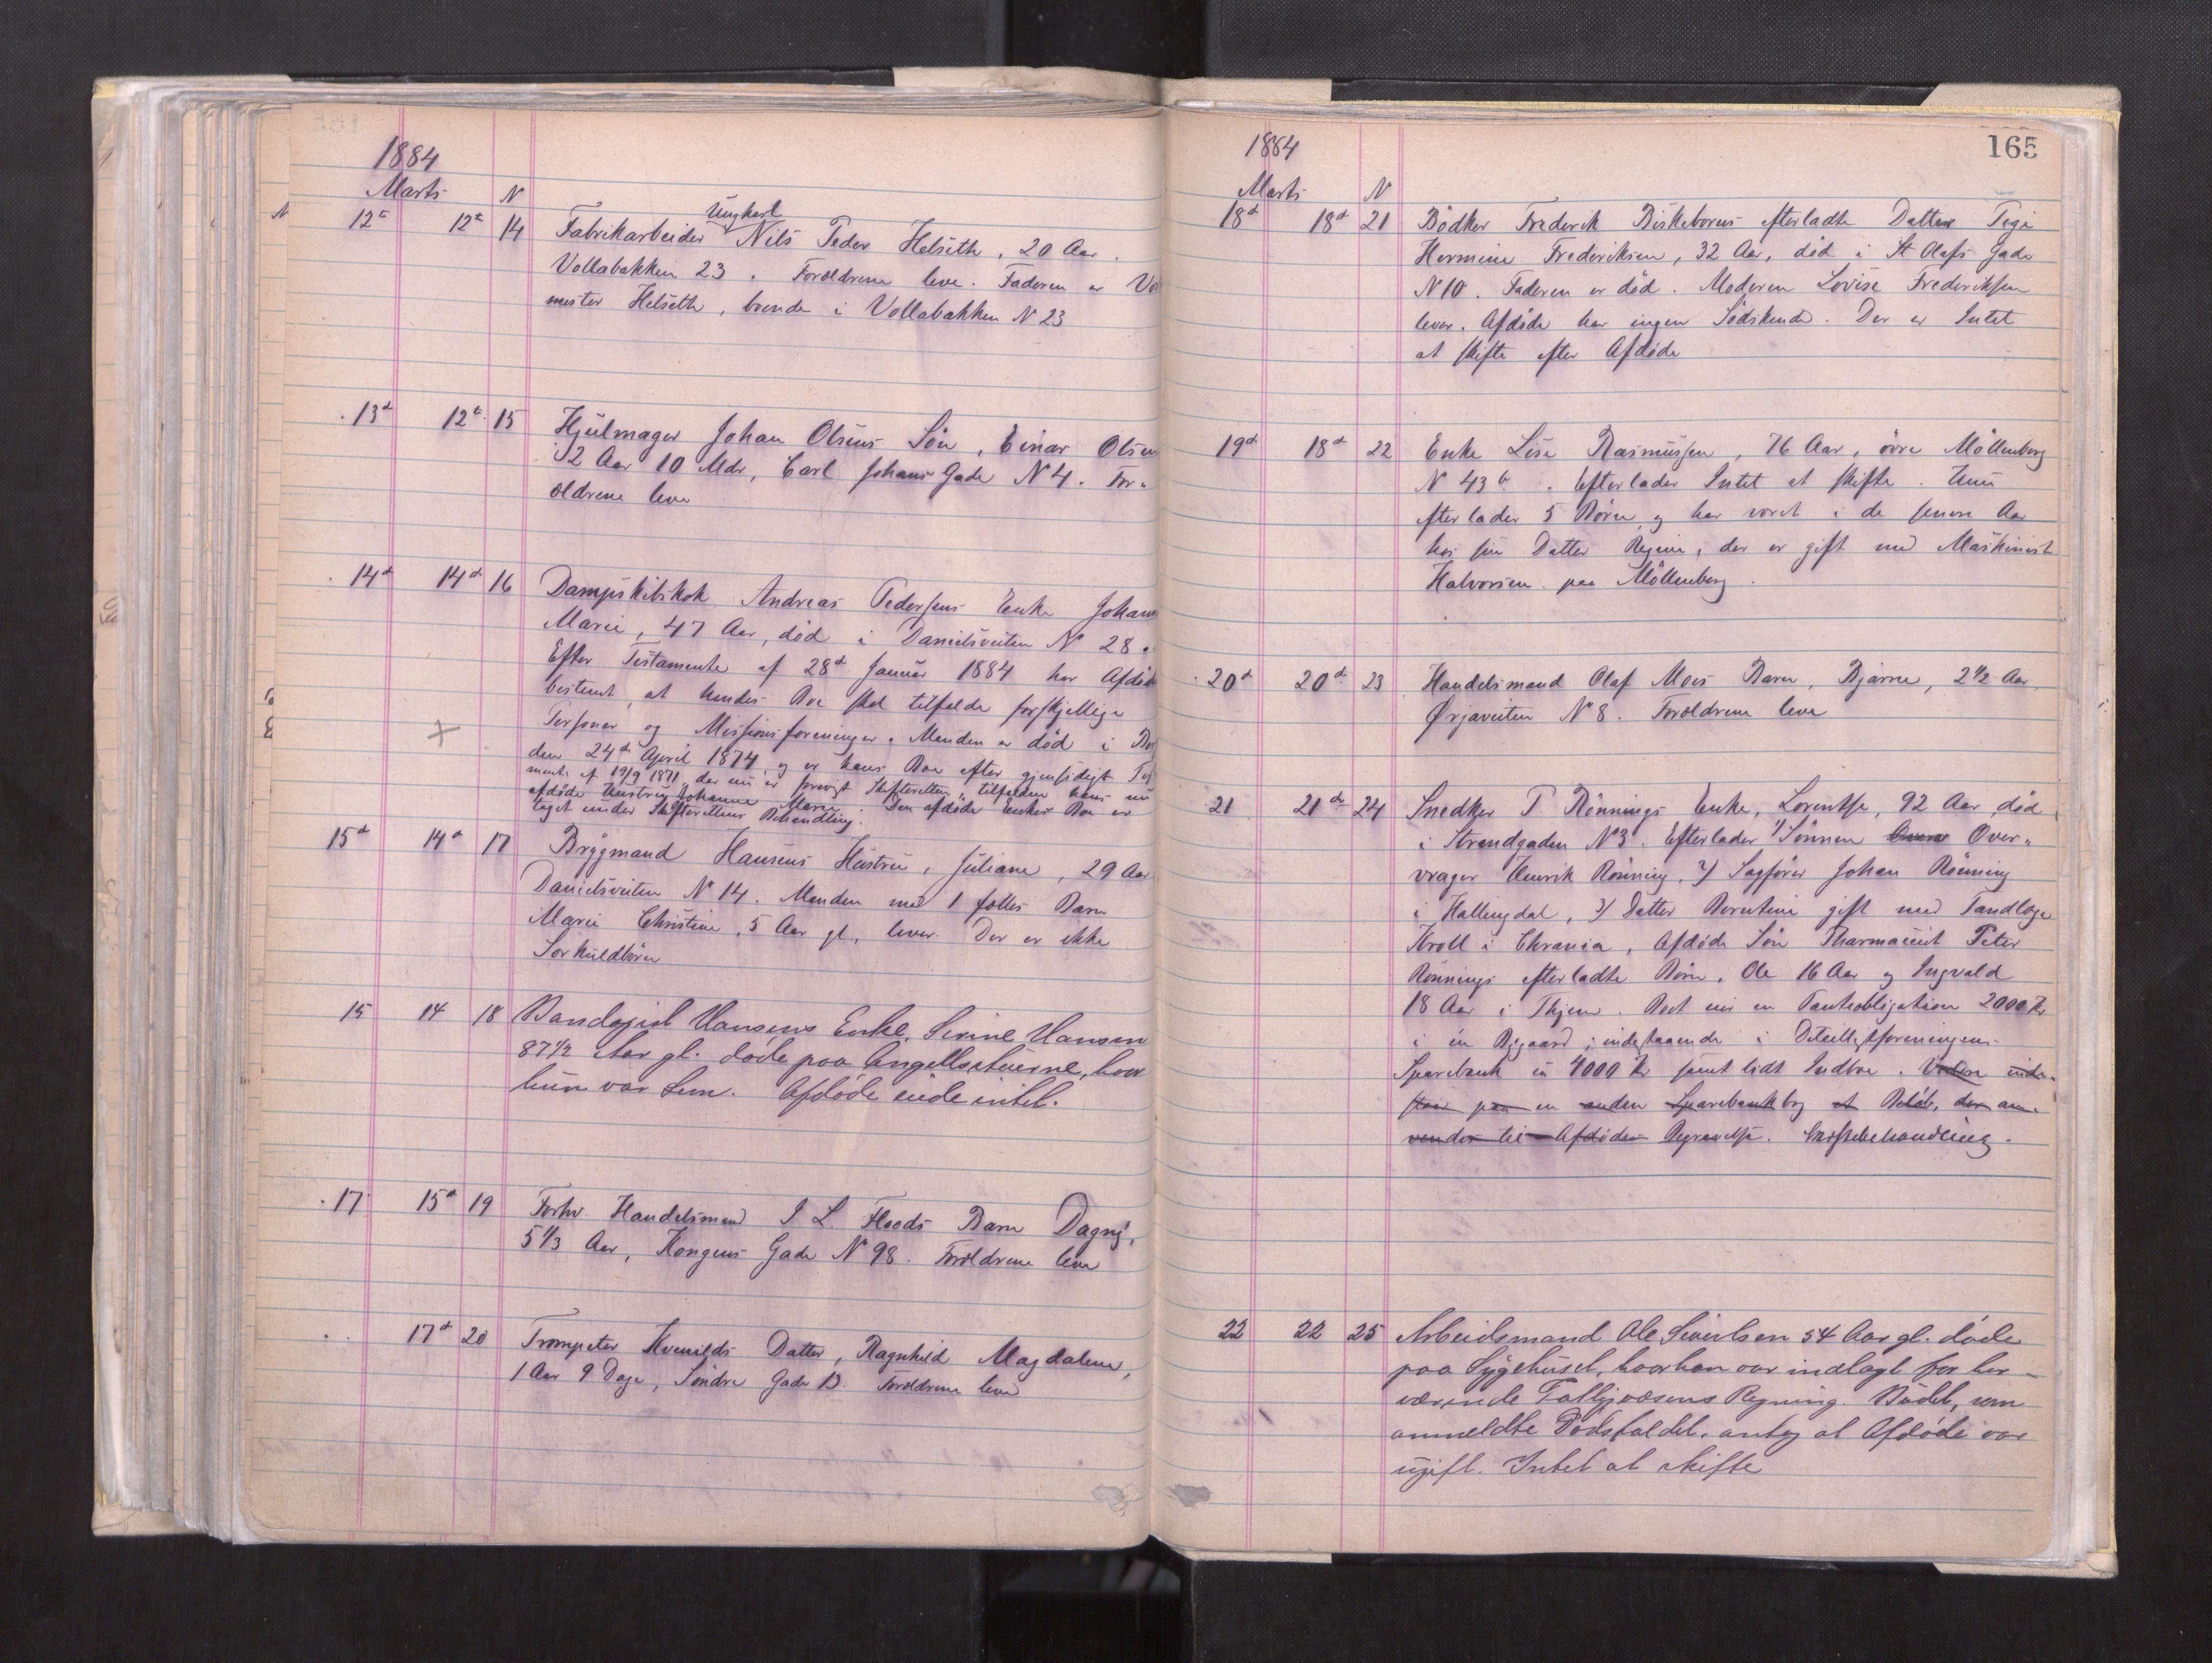 1884
Marts N
12t 12t 14 Fabrikarbeider Ungkarl Nils Peder Helseth, 20 Aar.
Vollabakken 23. Forældrene leve. Faderen er
mester Helseth, boende i Vollabakken N 23
13d 12t 15 Hjulmager Johan Olsens Søn, Einar Olsen
12 Aar 10 Mdr, Carl Johans Gade N 4. For-
ældrene leve
14d 14d 16 Dampskibskok Andreas Pedersens Enke Johanne
Marie, 47 Aar, død i Danielsveiten N 28.
Efter Testamente af 28d Januar 1884 har Afdøde
bestemt, at hendes Boe skal tilfalde forskjellige
Personer og Missionsforeninger. Manden er død i
den 24de April 1874, og er hans Boe efter gjensidigt
ment af 19/9 1871, der nu er forevist Skifteretten, tilfalden hans nu
afdøde Hustru Johanne Marie. Den afdøde Enkes Boe er
taget under Skifterettens Behandling.
15d 14d 17 Bryggmand Hansens Hustru, Juliane, 29 Aar
Danielsveiten N 14. Manden med 1 fælles Barn
Marie Christine, 5 Aar gl., lever. Der er ikke
Særkuldbørn
15 14 18 Bandagist Hansens Enke, Serine Hansen
87 1/2 Aar gl. døde paa Angellsstuerne, hvor
hun var Lem. Afdøde eiede intet.
17 15d 19 Forhv Handelsmand I L. Floods Barn Dagny,
5 1/3 Aar, Kongens Gade N 98. Forældrene leve
17d 20 Trompeter Kvenilds Datter, Ragnhild Magdalene,
1 Aar 9 Dage, Søndre Gade 13. Forældrene leve
1884
165
Marts N
18d 18d 21 Bødker Frederik Biskeborns efterladte Datter
Hermine Frederiksen, 32 Aar, død i St Olafs Gade
N 10. Faderen er død. Moderen Lovise Frederiksen
lever. Afdøde har ingen Sødskende. Der er Intet
at skifte efter Afdøde
19d 18d 22 Enke Lise Rasmussen, 76 Aar, øvre Møllenberg
N 43 b. Efterlader Intet at skifte. Hun
efterlader 5 Børn og har været i de senere Aar
hos sin Datter Regine, der er gift med Maskinist
Halvorsen paa Møllenberg.
20d 20d 23 Handelsmand Olaf Moes Barn, Bjarne, 2 1/2 Aar,
Ørjaveiten N 8. Forældrene leve
21 21de 24 Snedker P Rønnings Enke, Lorentse, 92 Aar, død
i Strandgaden N 3. Efterlader 1) Sønnen Over-
vrager Henrik Rønning, 2) Sagfører Johan Rønning
i Hallingdal, 3) Datter Berntine gift med Tandlæge
Kroll i Chrania, Afdøde Søn Pharmaceut Peter
Rønnings efterladte Børn, Ole 16 Aar og Ingvald
18 Aar i Thjem. Boet eier en Panteobligation 2000 Kr
i en Bygaard, indestaaende i Detaillistforeningens
Sparebank ca 4000 Kr samt lidt Indboe. Videre inde-
staar paa en anden Sparebankbog et Beløb, der an-
vendes til Afdødes Begravelse. Skiftebehandling.
22 22 25 Arbeidsmand Ole Sivertsen 54 Aar gl. døde
paa Sygehuset, hvor han var indlagt for her-
værende Fattigvæsens Regning. Budet, som
anmeldte Dødsfaldet, antog at Afdøde var
ugift. Intet at skifte